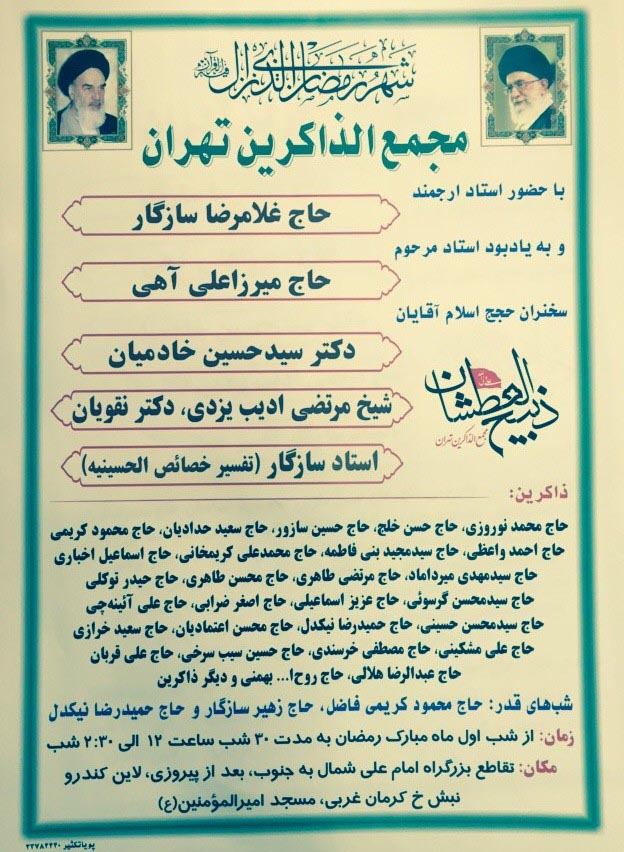 شهر رمضان الذی انزل فیه القرآن
مجمع الذاکرین تهران
با حضور استاد ارجمند
حاج غلامرضا سازگار
و به یادبود استاد مرحوم
حاج میرزاعلی آهی
سخنران حجج اسلام آقایان
دکتر سیدحسین خادمیان
شیخ مرتضی ادیب یزدی، دکتر نقویان
استاد سازگار (تفسیر خصائص الحسینیه)
ذبیح العطشان
مجمع الذاکرین تهران
ذاکرین:
حاج محمد نوروزی، حاج حسن خلج، حاج حسین سازور، حاج سعید حدادیان، حاج محمود کریمی
حاج احمد واعظی، حاج سیدمجید بنی فاطمه، حاج محمدعلی کریمخانی، حاج اسماعیل اخباری
حاج سیدمهدی میرداماد، حاج مرتضی طاهری، حاج محسن طاهری، حاج حیدر توکلی
حاج سیدمحسن گرسوئی، حاج عزیز اسماعیلی، حاج اصغر ضرابی، حاج علی آئینه‌چی
حاج سیدمحسن حسینی، حاج حمیدرضا نیکدل، حاج محسن اعتمادیان، حاج سعید خرازی
حاج علی مشکینی، حاج مصطفی خرسندی، حاج حسین سیب سرخی، حاج علی قربان
حاج عبدالرضا هلالی، حاج روح‌ا... بهمنی و دیگر ذاکرین
شب‌های قدر: حاج محمود کریمی فاضل، حاج زهیر سازگار و حاج حمیدرضا نیکدل
زمان: از شب اول ماه مبارک رمضان به مدت ۳۰ شب ساعت ۱۲ الی ۲:۳۰ شب
مکان: تقاطع بزرگراه امام علی شمال به جنوب، بعد از پیروزی، لاین کندرو
نبش خ کرمان غربی، مسجد امیرالمؤمنین(ع)
پویاتکثیر ۲۲۷۸۲۴۴۰